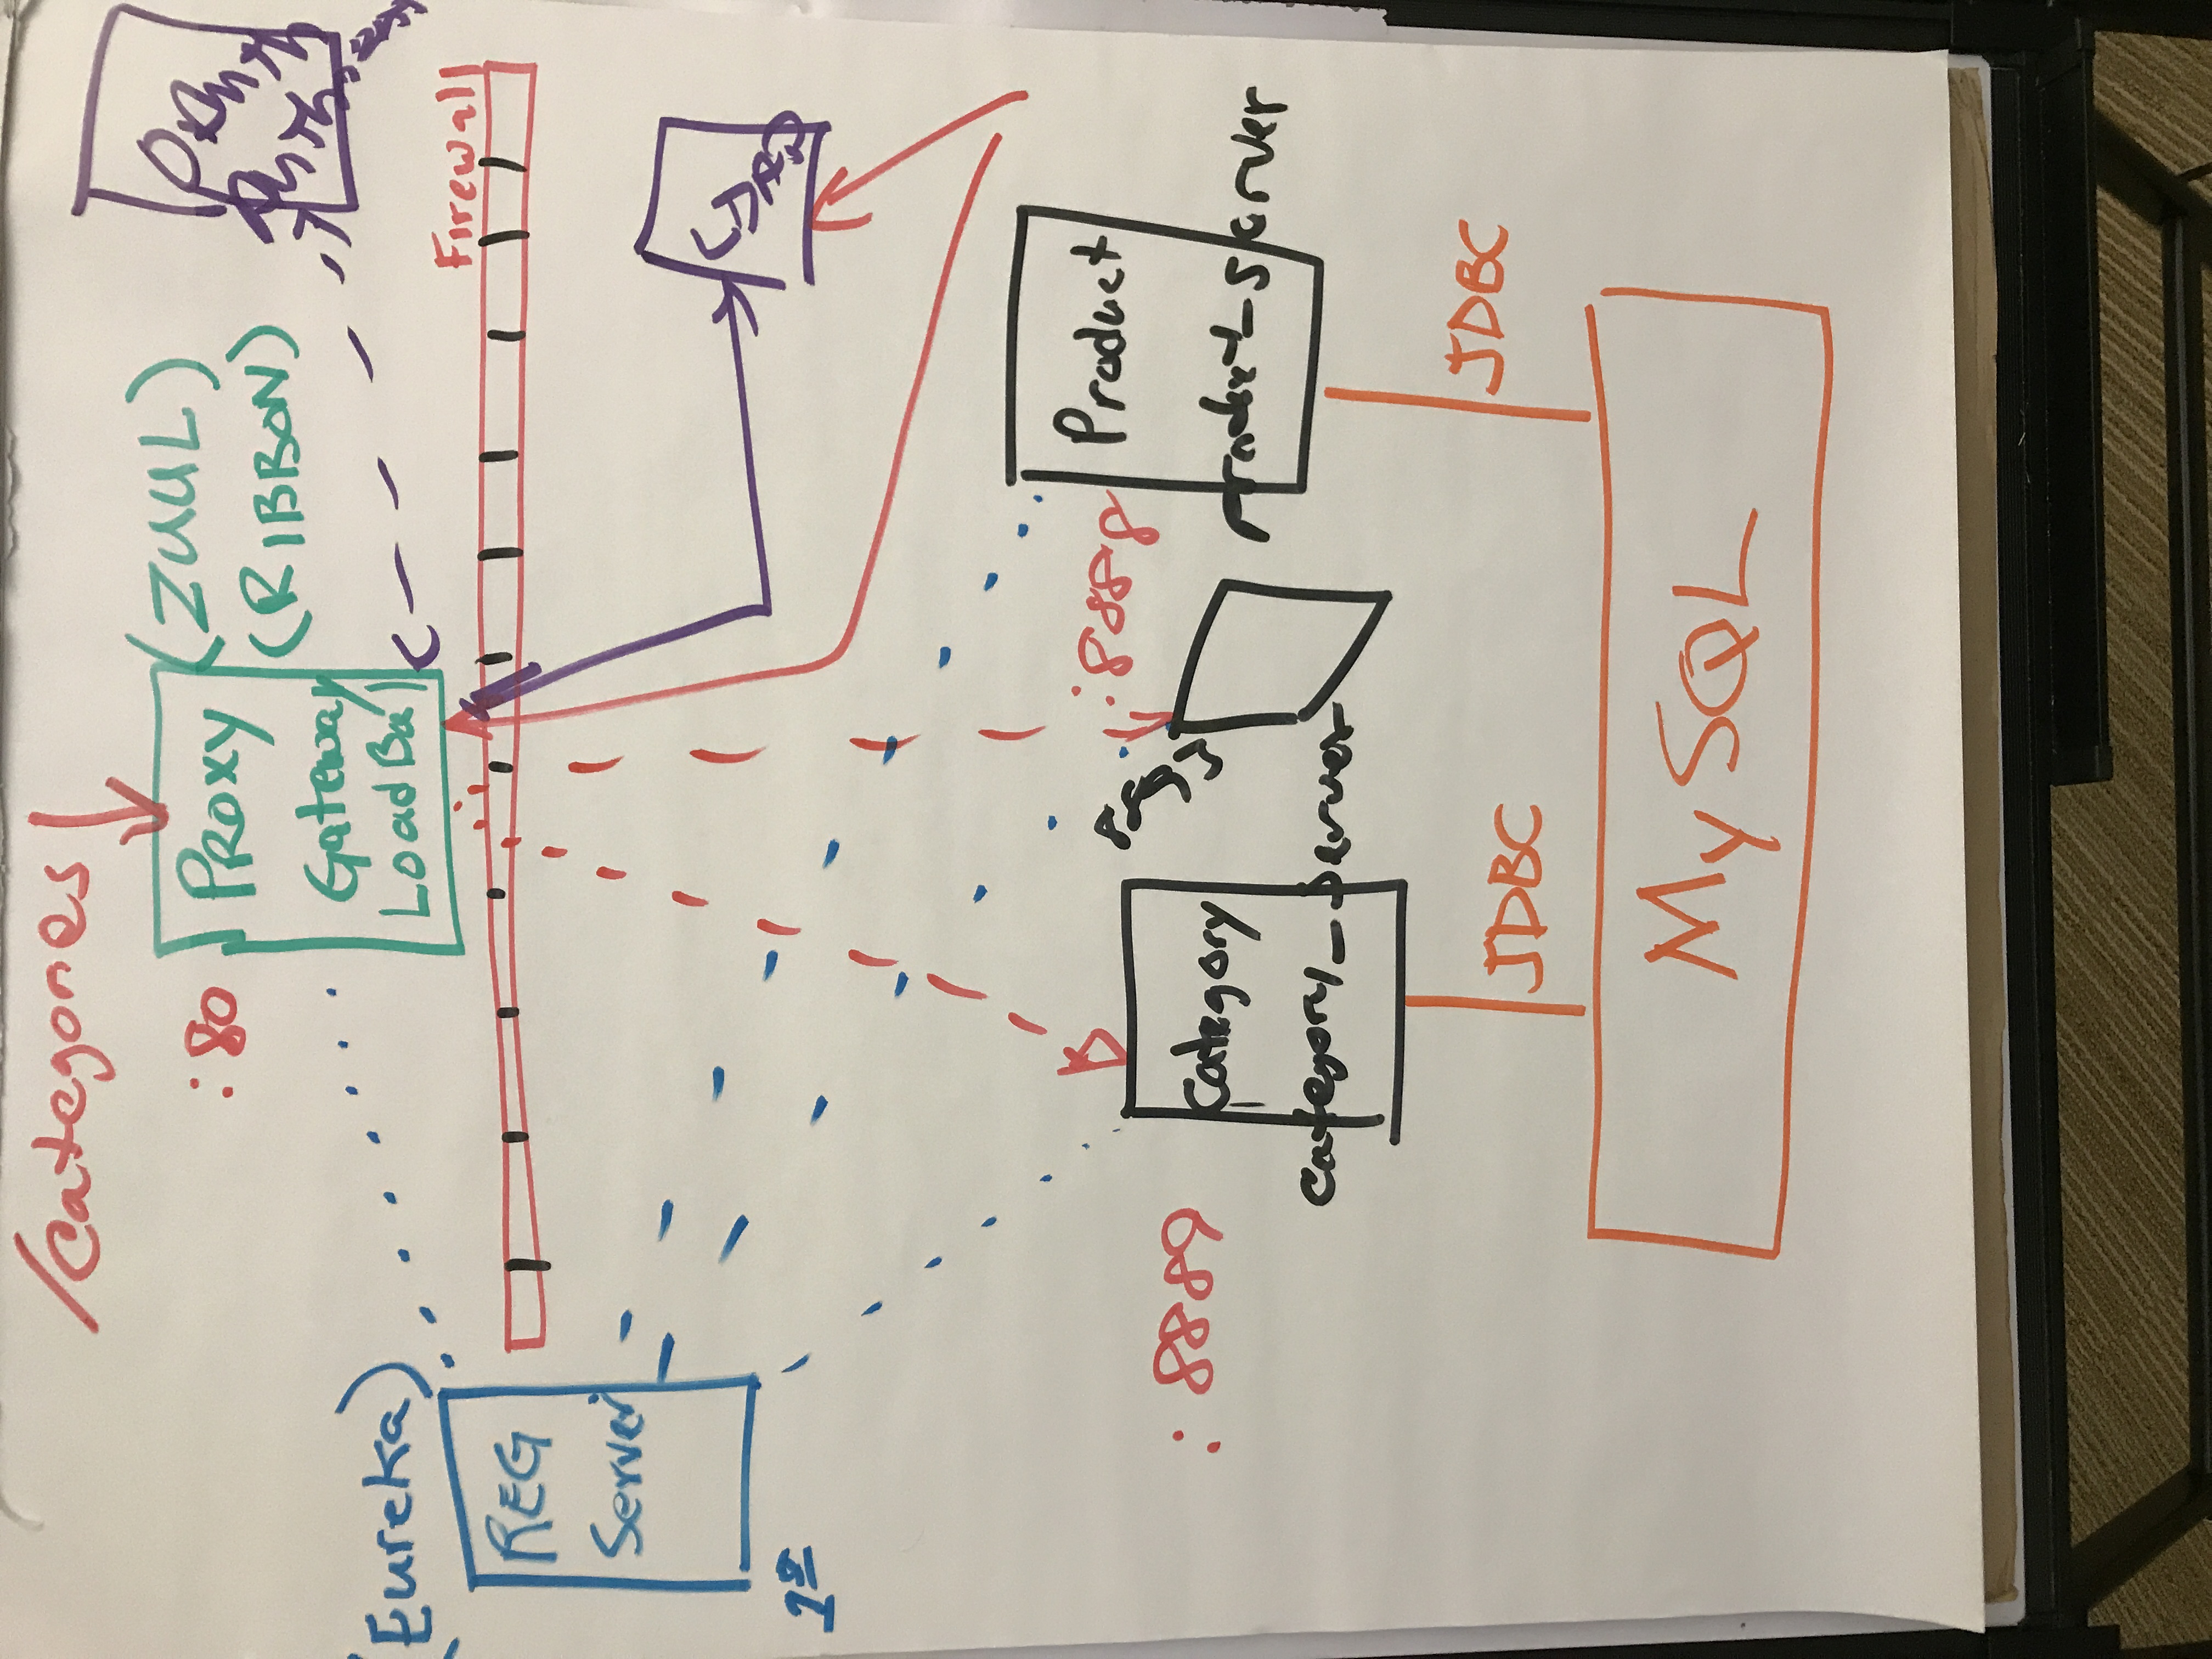 /categories
:80
Proxy
Gateway
Load Bal
(ZUUL)
(RIBBON)
(Eureka)
REG
Server
1st
Firewall
:8889
:8888
Category
category_server
Product
product_server
JDBC
JDBC
MySQL